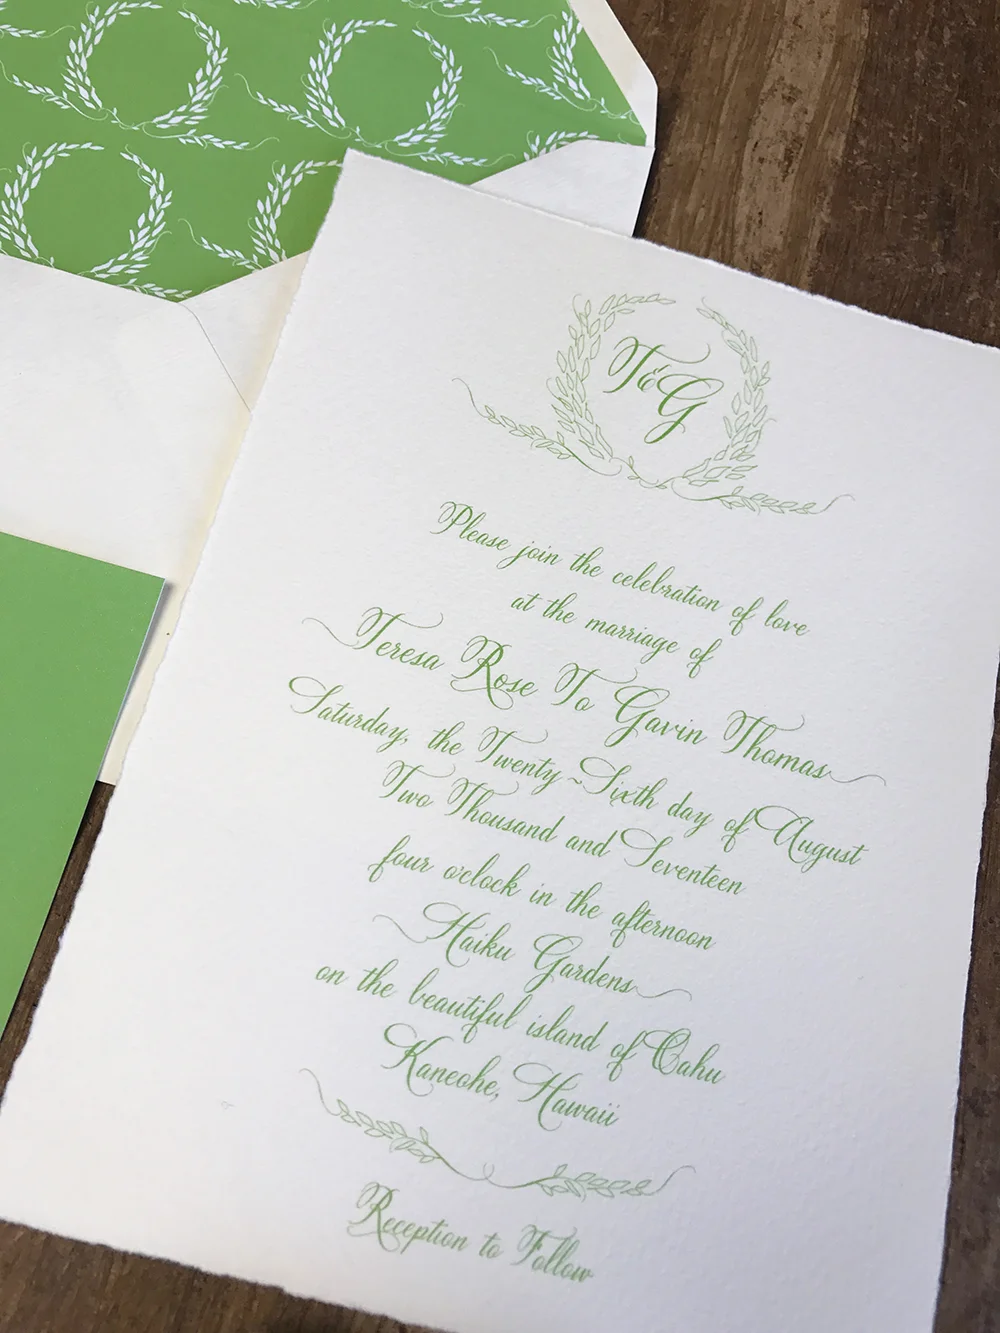 T & G
Please join the celebration of love
at the marriage of
Teresa Rose To Gavin Thomas
Saturday, the Twenty~Sixth day of August
Two Thousand and Seventeen
four o'clock in the afternoon
Haiku Gardens
on the beautiful island of Oahu
Kaneohe, Hawaii
Reception to Follow